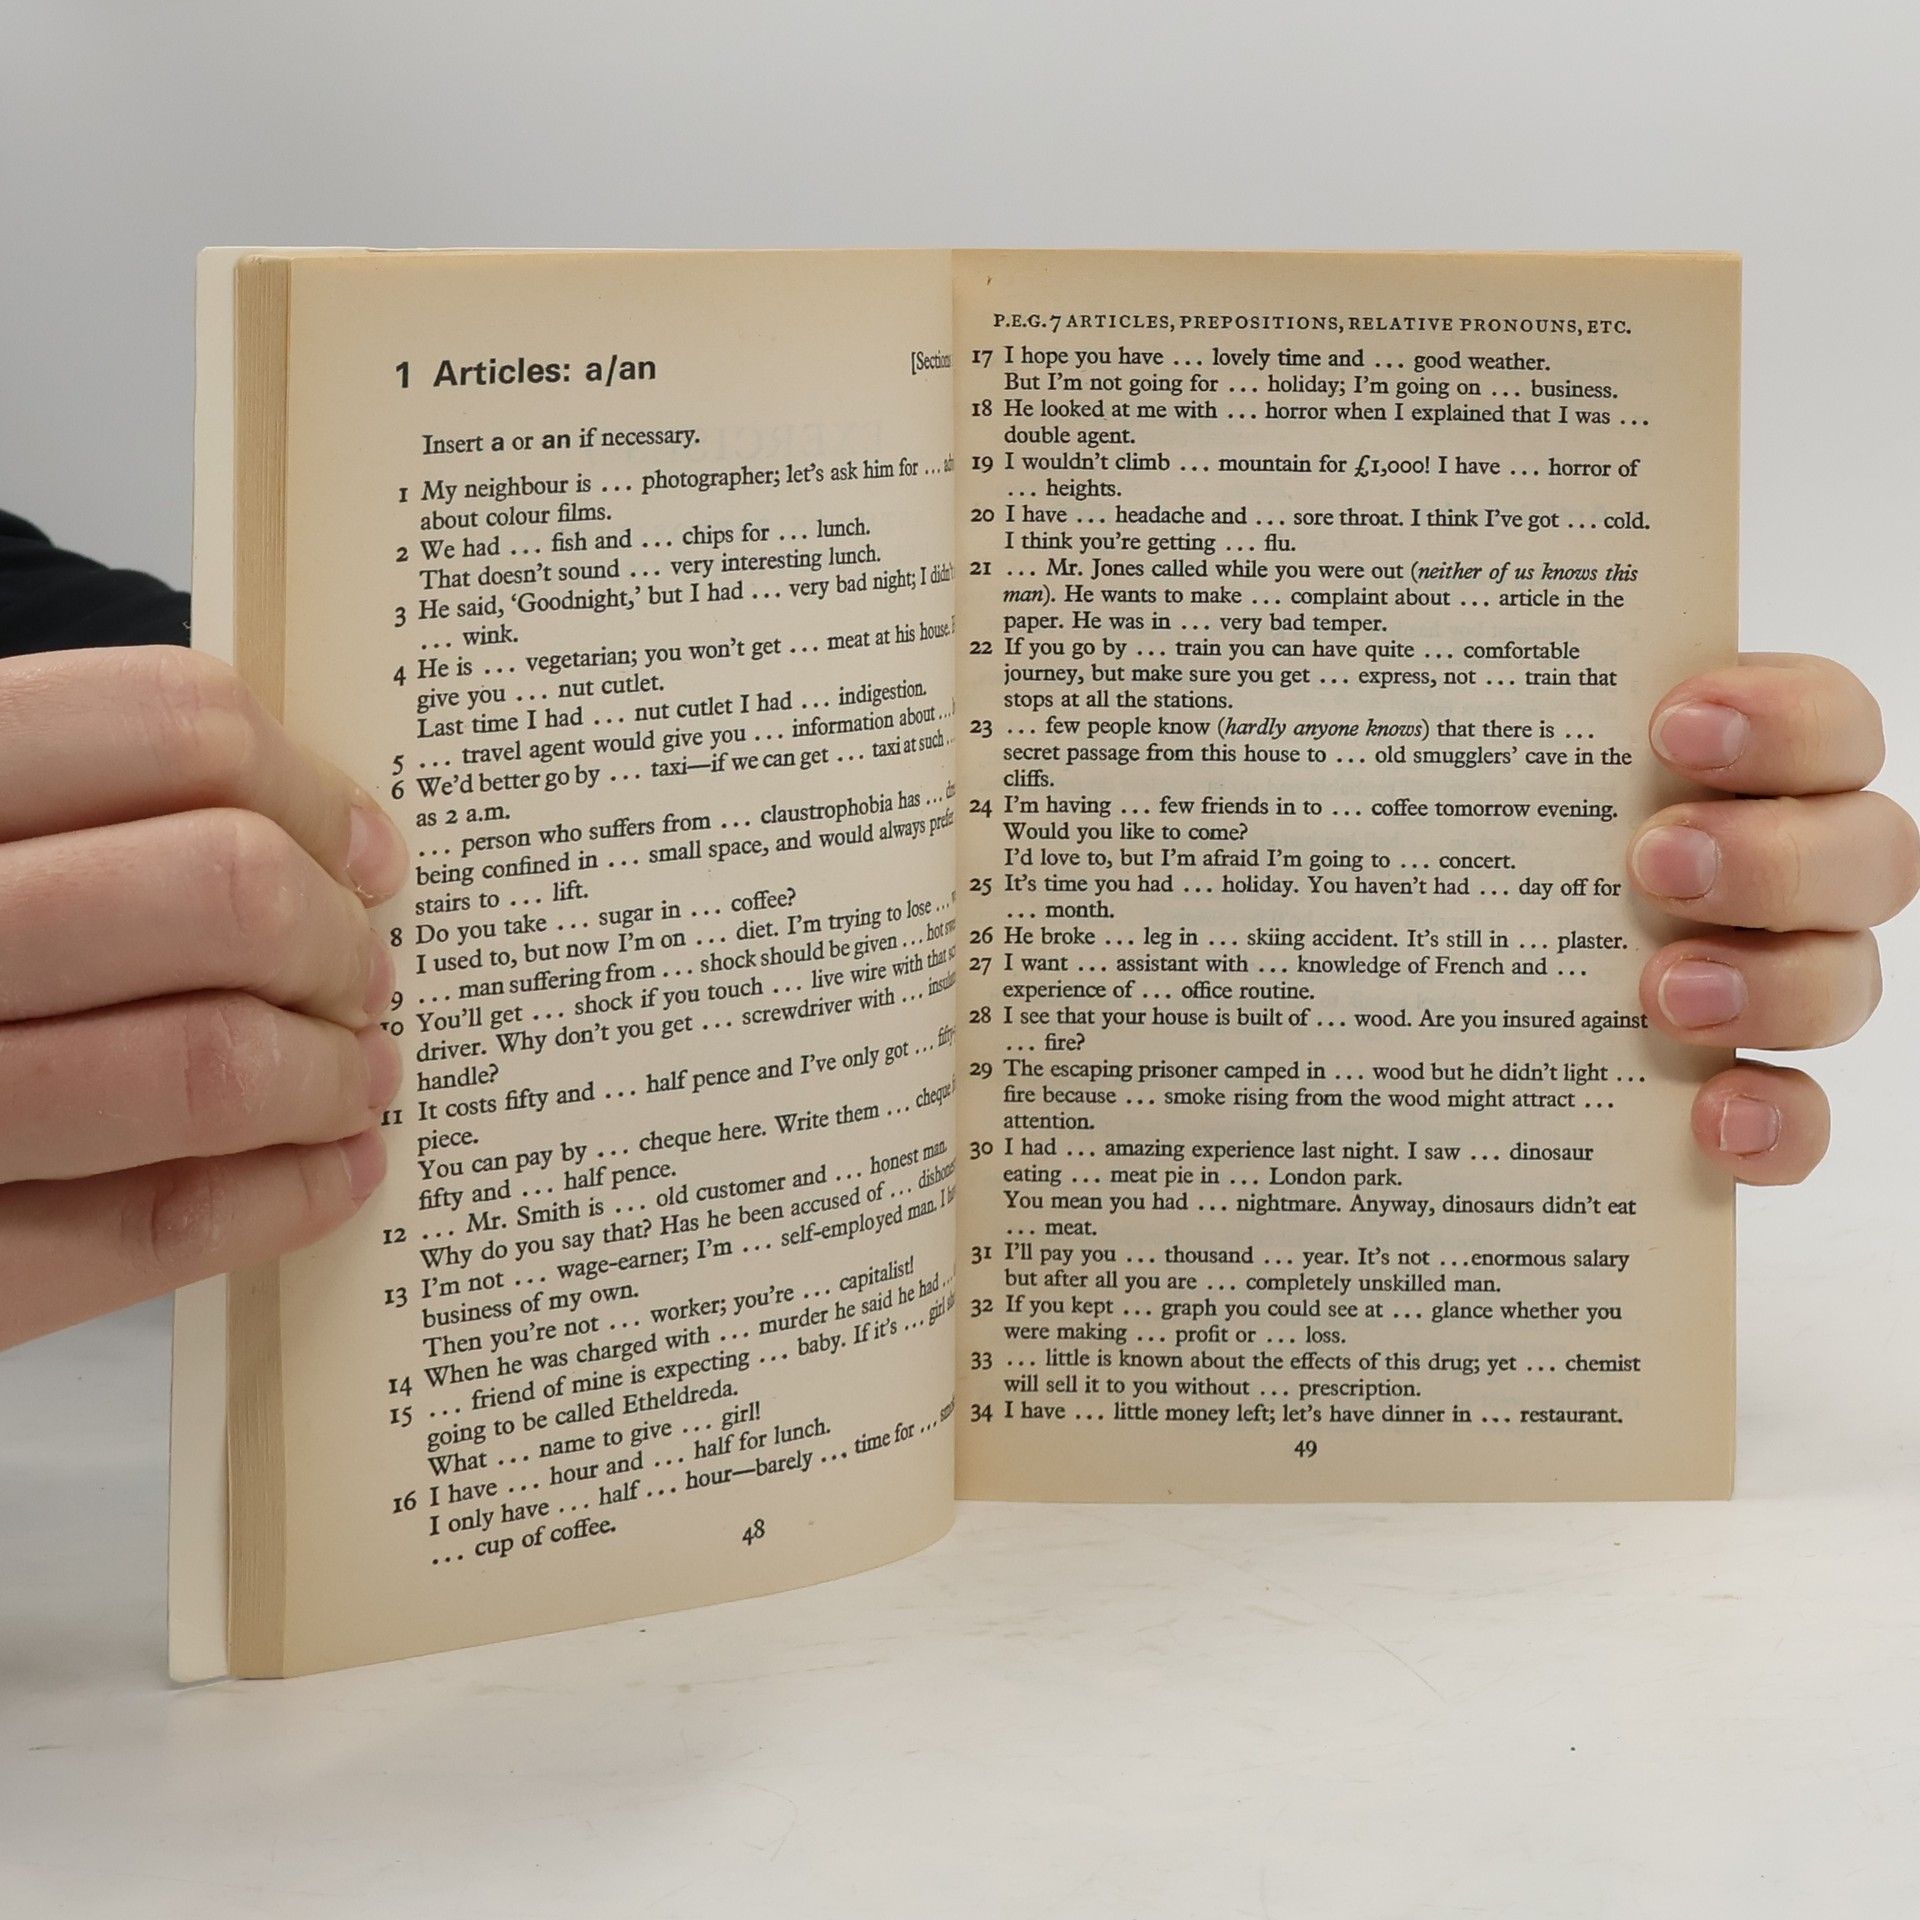 1 Articles: a/an
Insert a or an if necessary.
1 My neighbour is ... photographer; let's ask him for ...
about colour films.
2 We had ... fish and ... chips for ... lunch.
That doesn't sound ... very interesting lunch.
3 He said, ‘Goodnight,’ but I had ... very bad night; I didn't
... wink.
4 He is ... vegetarian; you won't get ... meat at his house.
give you ... nut cutlet.
Last time I had ... nut cutlet I had ... indigestion.
5 ... travel agent would give you ... information about ...
6 We'd better go by ... taxi—if we can get ... taxi at such ...
as 2 a.m.
... person who suffers from ... claustrophobia has ...
being confined in ... small space, and would always prefer
stairs to ... lift.
8 Do you take ... sugar in ... coffee?
I used to, but now I'm on ... diet. I'm trying to lose ...
9 ... man suffering from ... shock should be given ... hot
10 You'll get ... shock if you touch ... live wire with that
driver. Why don't you get ... screwdriver with ...
handle?
11 It costs fifty and ... half pence and I've only got ... fifty
piece.
You can pay by ... cheque here. Write them ... cheque
fifty and ... half pence.
12 ... Mr. Smith is ... old customer and ... honest man.
Why do you say that? Has he been accused of ...
13 I'm not ... wage-earner; I'm ... self-employed man. I
business of my own.
Then you're not ... worker; you're ... capitalist!
14 When he was charged with ... murder he said he had ...
15 ... friend of mine is expecting ... baby. If it's ... girl
going to be called Etheldreda.
What ... name to give ... girl!
16 I have ... hour and ... half for lunch.
I only have ... half ... hour—barely ... time for ...
... cup of coffee.
48
P.E.G. 7 ARTICLES, PREPOSITIONS, RELATIVE PRONOUNS, ETC.
17 I hope you have ... lovely time and ... good weather.
But I'm not going for ... holiday; I'm going on ... business.
18 He looked at me with ... horror when I explained that I was ...
double agent.
19 I wouldn't climb ... mountain for £1,000! I have ... horror of
... heights.
20 I have ... headache and ... sore throat. I think I've got ... cold.
I think you're getting ... flu.
21 ... Mr. Jones called while you were out (neither of us knows this
man). He wants to make ... complaint about ... article in the
paper. He was in ... very bad temper.
22 If you go by ... train you can have quite ... comfortable
journey, but make sure you get ... express, not ... train that
stops at all the stations.
23 ... few people know (hardly anyone knows) that there is ...
secret passage from this house to ... old smugglers' cave in the
cliffs.
24 I'm having ... few friends in to ... coffee tomorrow evening.
Would you like to come?
I'd love to, but I'm afraid I'm going to ... concert.
25 It's time you had ... holiday. You haven't had ... day off for
... month.
26 He broke ... leg in ... skiing accident. It's still in ... plaster.
27 I want ... assistant with ... knowledge of French and ...
experience of ... office routine.
28 I see that your house is built of ... wood. Are you insured against
... fire?
29 The escaping prisoner camped in ... wood but he didn't light ...
fire because ... smoke rising from the wood might attract ...
attention.
30 I had ... amazing experience last night. I saw ... dinosaur
eating ... meat pie in ... London park.
You mean you had ... nightmare. Anyway, dinosaurs didn't eat
... meat.
31 I'll pay you ... thousand ... year. It's not ...enormous salary
but after all you are ... completely unskilled man.
32 If you kept ... graph you could see at ... glance whether you
were making ... profit or ... loss.
33 ... little is known about the effects of this drug; yet ... chemist
will sell it to you without ... prescription.
34 I have ... little money left; let's have dinner in ... restaurant.
49